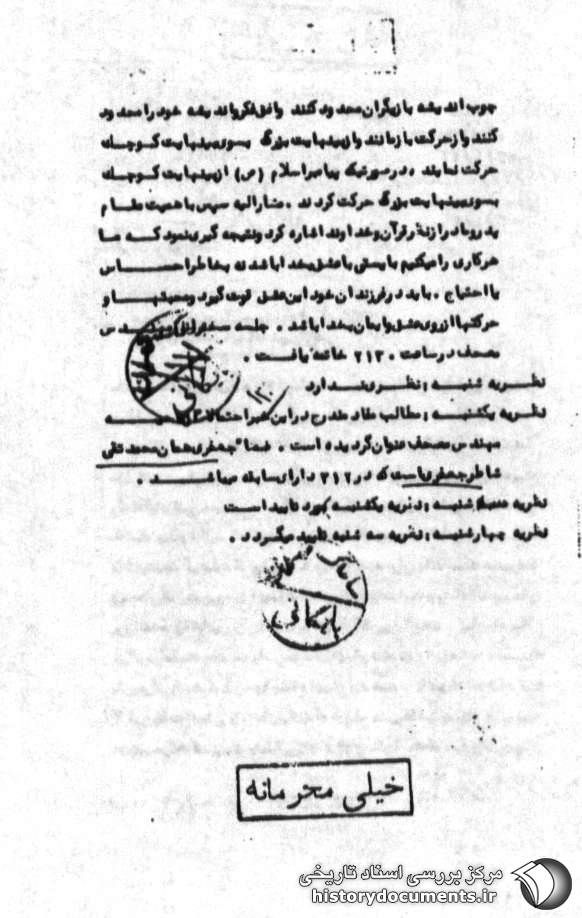 چوب اندیشه بازیگران محدود کنند و افق فکر و اندیشه خود را محدود
کنند و از حرکت باز مانند و از بینهایت بزرگ بسوی بینهایت کوچک
حرکت نمایند . در صورتیکه پیامبر اسلام (ص) از بینهایت کوچک
بسوی بینهایت بزرگ حرکت کردند . مشارالیه سپس با همیت مقام
پدر و مادر از نظر قرآن و خداوند اشاره کرد و نتیجه گیری نمود که ما
هرکاری را میکنیم بایستی با عشق بخدا باشد نه بخاطر احساس
یا احتیاج . باید در فرزندان خود این عشق قوت گیرد و محبتها و
حرکتها از روی عشق و ایمان بخدا باشد . جلسه سخنرانی مهندس
مصحف در ساعت ۲۱۳۰ خاتمه یافت .
نظریه شنبه : نظری ندارد
نظریه یکشنبه : مطالب مفاد مندرج در این خبر احتمالا
مهندس مصحف عنوان گردیده است . ضمنا جعفری همان محمد تقی
شاطر جعفری است که در ۳۱۲ دارای سابقه میباشد .
نظریه سه شنبه : نظریه یکشنبه مورد تایید است
نظریه چهارشنبه : نظریه سه شنبه تایید میگردد .
بایگانی
خیلی محرمانه
مرکز بررسی اسناد تاریخی
historydocuments.ir